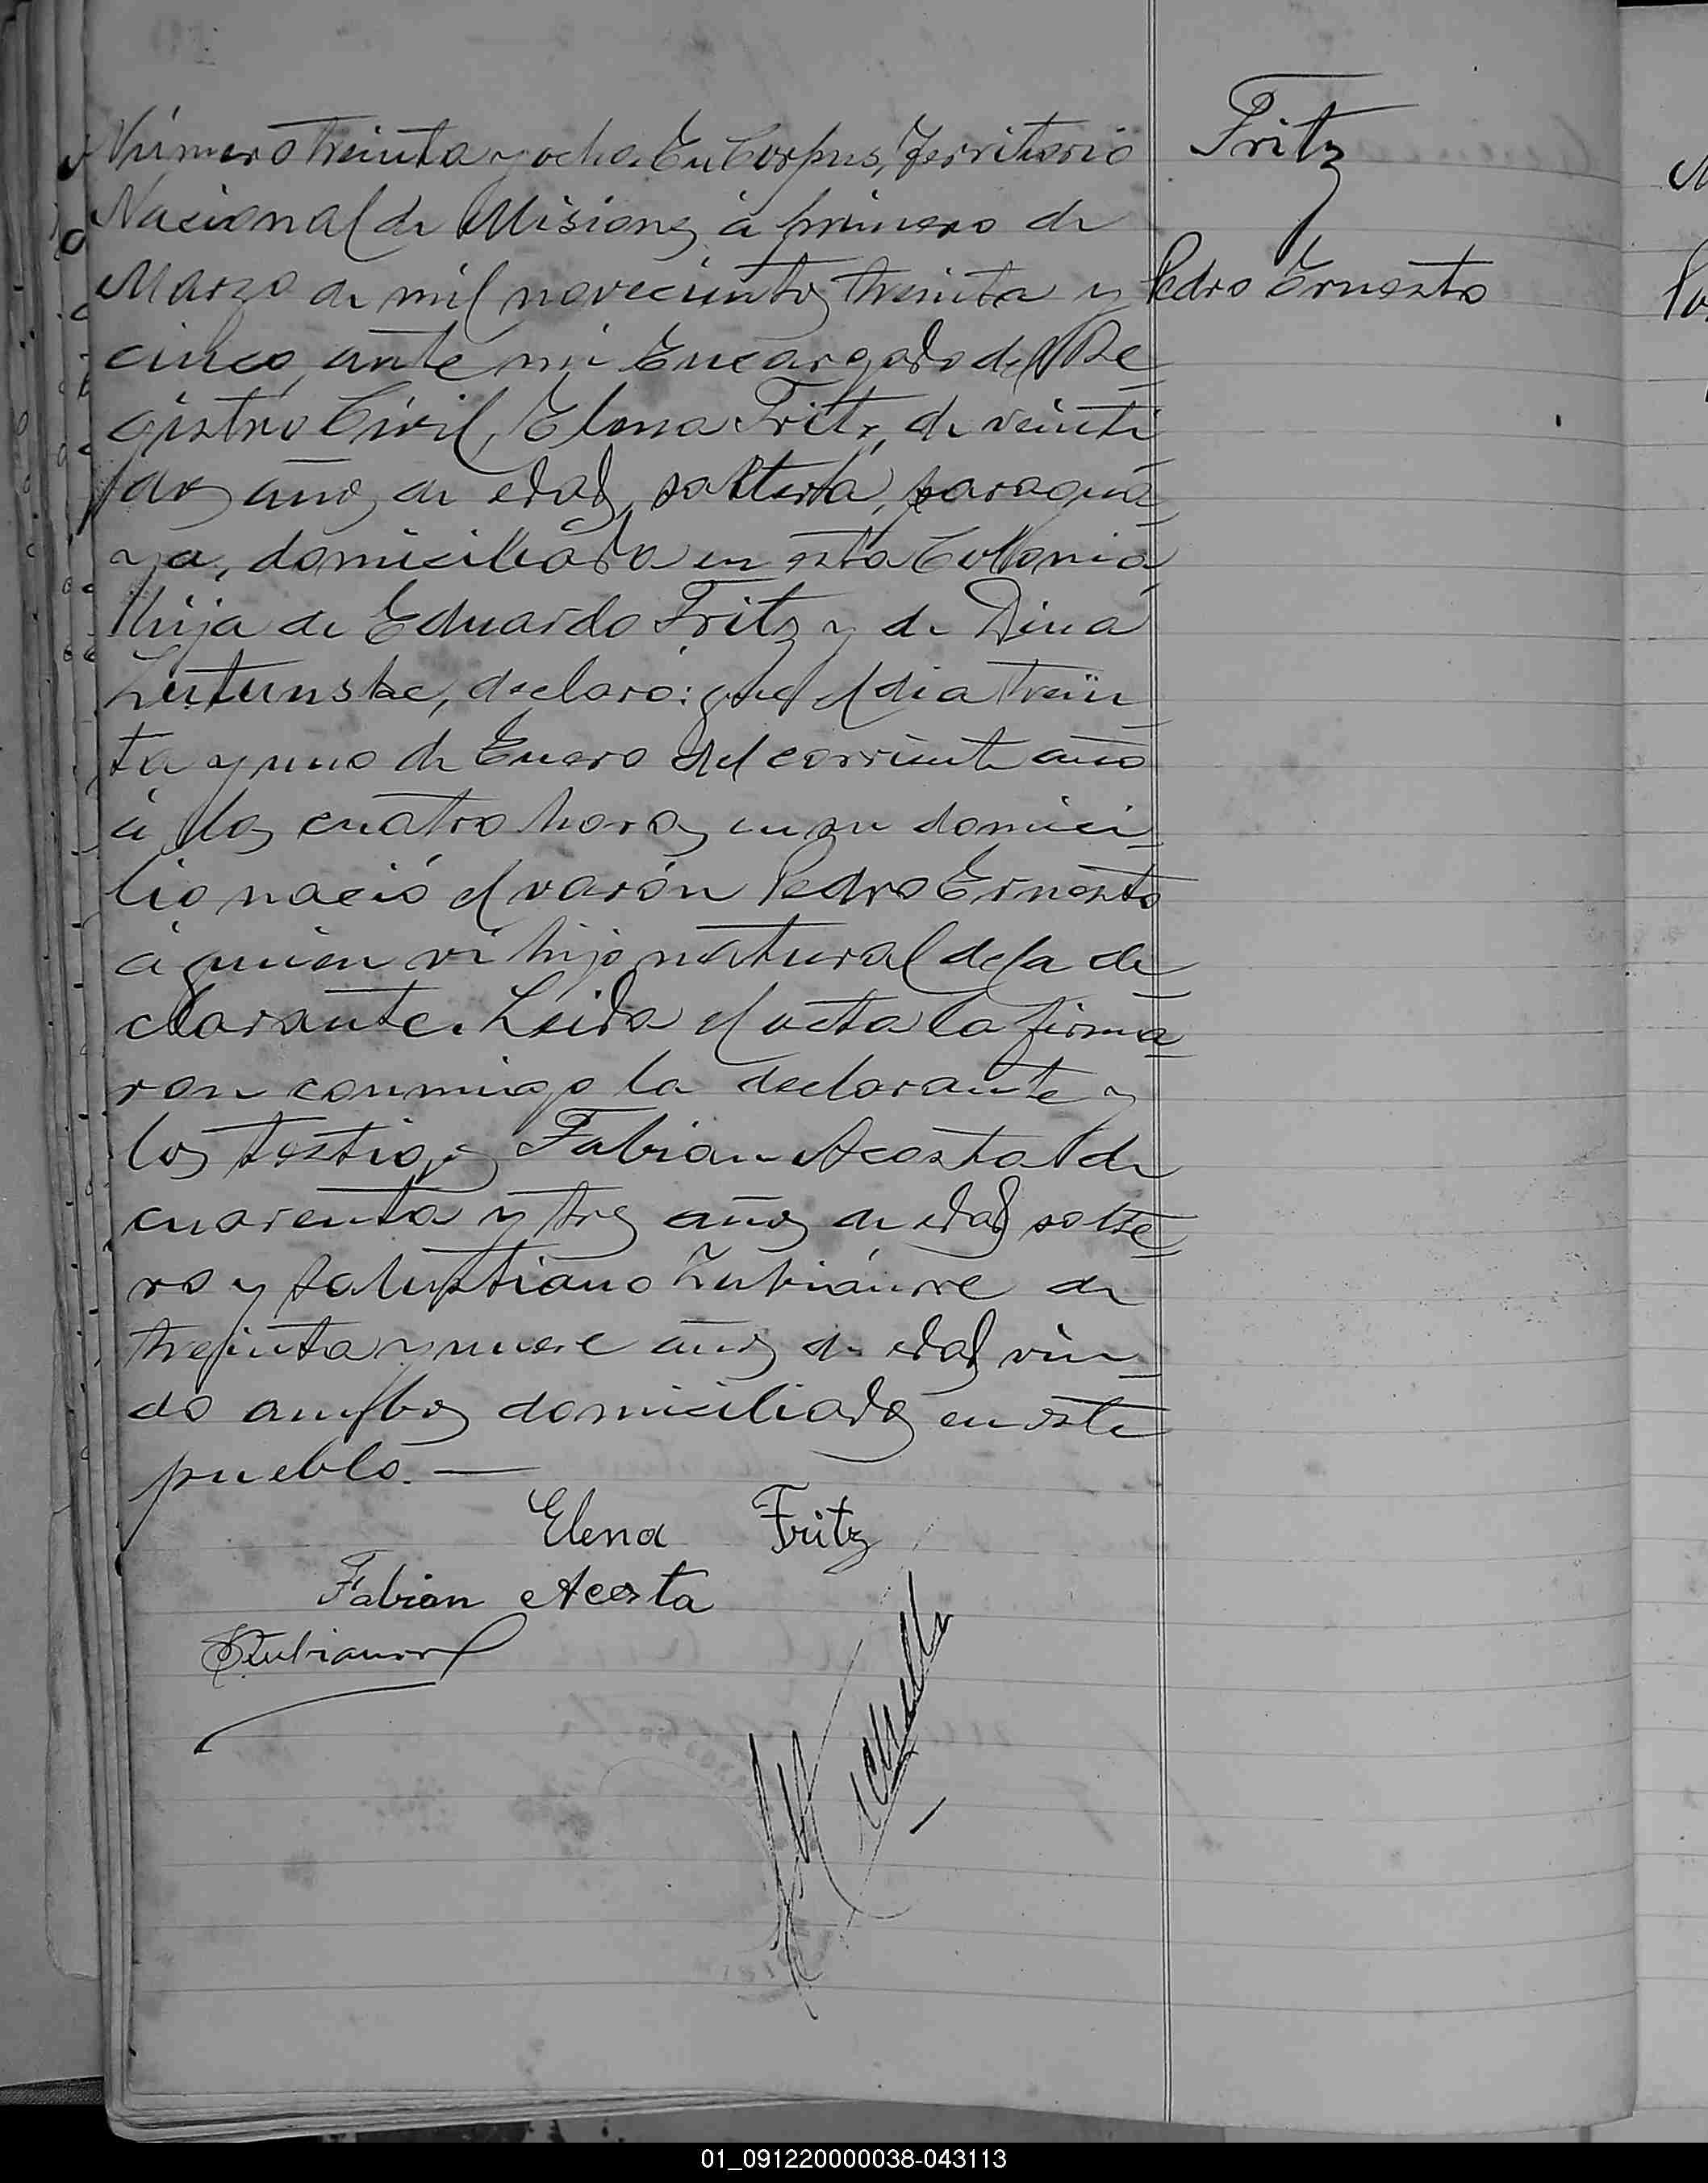 Número treinta y ocho. En Corpus, Territorio
Nacional de Misiones, á primero de
Marzo de mil novecientos treinta y
cinco, ante mi Encargado del Re
gistro Civil, Elena Fritz, de veinti
dos años de edad, soltera, paragua
ya, domiciliada en esta Colonia
hija de Eduardo Fritz y de Dina
declaró: que el dia trein
ta y uno de Enero del corriente año
á las cuatro horas en su domici
lio nació el varón Pedro Ernesto
á quien vi hijo natural de la de
clarante. Leida el acta la firma
ron conmigo la declarante y
los testigos Fabian Acosta de
cuarenta y tres años de edad solte
ro y Salustiano Zubiaurre de
treinta y nueve años de edad viu
do ambos domiciliados en este
pueblo. —
Elena Fritz
Fabian Acosta
SZubiaurre
Fritz
Pedro Ernesto
01_091220000038-043113